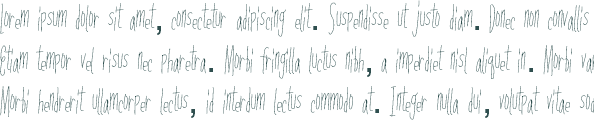 Lorem ipsum dolor sit amet, consectetur adipiscing elit. Suspendisse ut justo diam. Donec non convallis
Etiam tempor vel risus nec pharetra. Morbi fringilla luctus nibh, a imperdiet nisl aliquet in. Morbi va
Morbi hendrerit ullamcorper lectus, id interdum lectus commodo at. Integer nulla dui, volutpat vitae sod